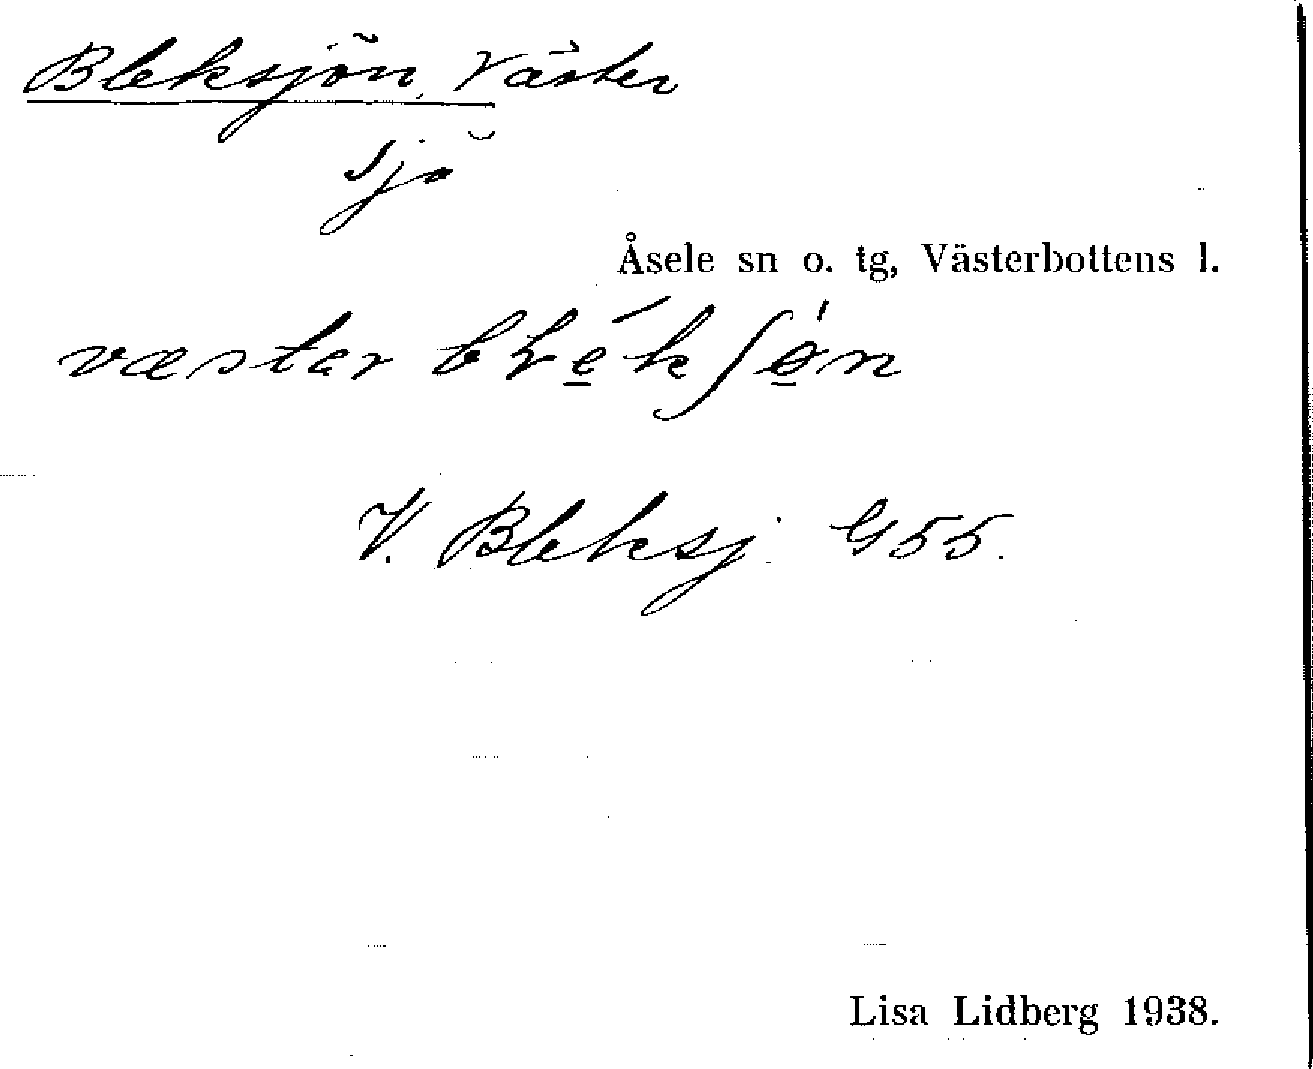 Bleksjön, Väster
sjö
Åsele sn o. tg, Västerbottens l.
væstar bɫe̲´kʃø̲̀n
V. Bleksj. G55.
Lisa Lidberg 1938.